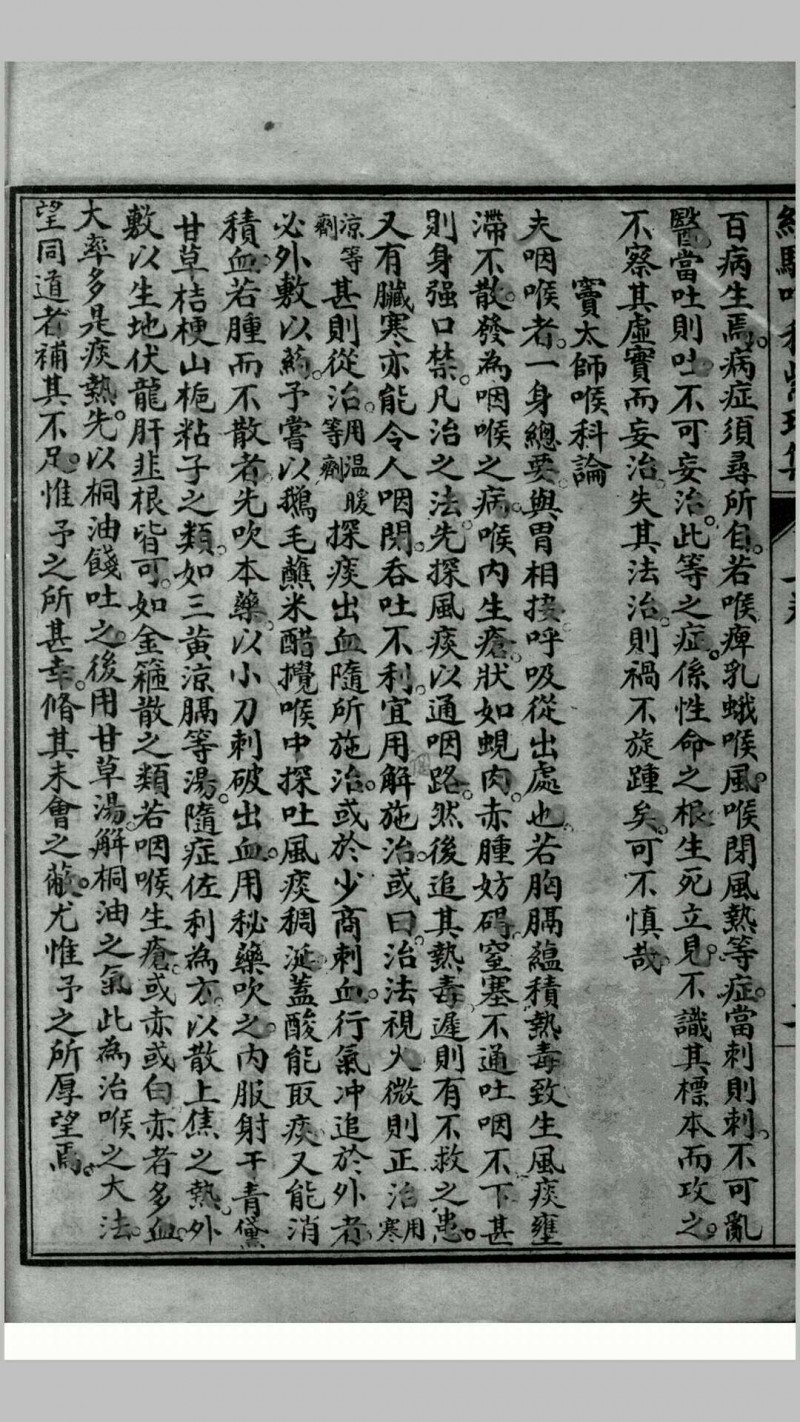 百病生焉。病症須尋所自。若喉痺乳蛾喉風。喉閉風熱等症。當刺則刺。不可亂
醫。當吐則吐。不可妄治。此等之症。係性命之根。生死立見。不識其標本而攻之。
不察其虛實而妄治。失其法治。則禍不旋踵矣。可不慎哉。
竇太師喉科論
夫咽喉者。一身總要。與胃相接。呼吸從出處也。若胸膈蘊積熱毒。致生風痰。壅
滯不散。發為咽喉之病。喉內生瘡。狀如蜆肉。赤腫妨碍。窒塞不通。吐咽不下。甚
則身强口禁。凡治之法。先探風痰。以通咽路。然後追其熱毒。遲則有不救之患。
又有臟寒亦能令人咽閉。吞吐不利。宜用解施治。或曰。治法視火微則正治用寒
涼等劑甚則從治。用温暖等劑探痰出血。隨所施治。或於少商刺血。行氣冲追於外者。
必外敷以藥。予嘗以鵝毛蘸米醋攪喉中。探吐風痰稠涎。蓋酸能取痰。又能消
積血。若腫而不散者。先吹本藥。以小刀刺破出血。用秘藥吹之。內服射干青黛
甘草桔梗山梔粘子之類。如三黃涼膈等湯。隨症佐利為方。以散上焦之熱。外
敷以生地伏龍肝韭根皆可。如金箍散之類。若咽喉生瘡。或赤或白。赤者多血。
大率多是痰熱。先以桐油餞吐之。後用甘草湯。解桐油之氣。此為治喉之大法。
望同道者補其不足。惟予之所甚幸。脩其未會之蔽。尤惟予之所厚望焉。